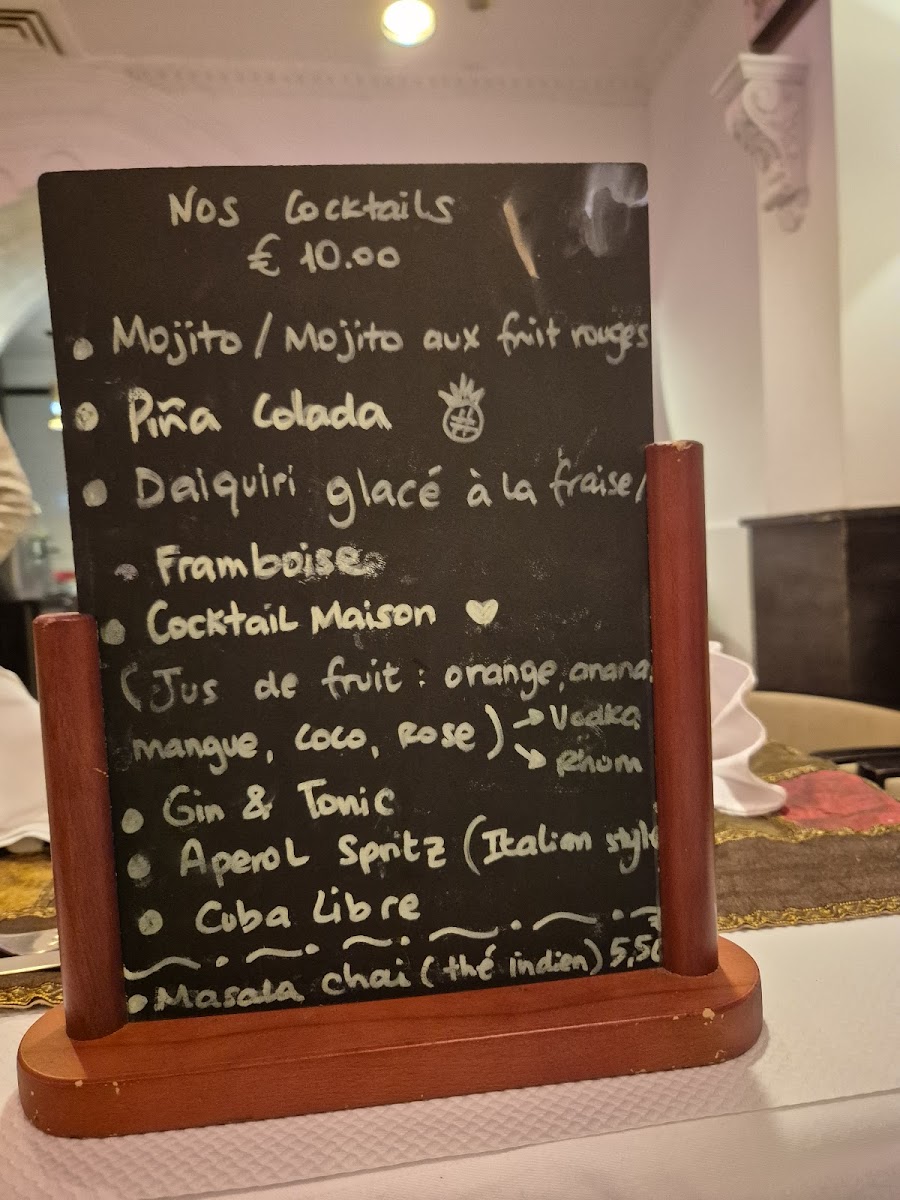 Nos Cocktails
€ 10.00
• Mojito / Mojito aux fruit rouges
• Piña Colada
• Daiquiri glacé à la fraise/
• Framboise
• Cocktail Maison ♥
(Jus de fruit : orange, anana
mangue, coco, Rose) → Vodka
↘ Rhum
• Gin & Tonic
• Aperol Spritz (Italian style
• Cuba Libre
• Masala chai (thé indien) 5,50